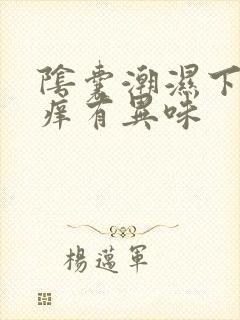 陰囊潮濕下
痒有異味
楊邁軍